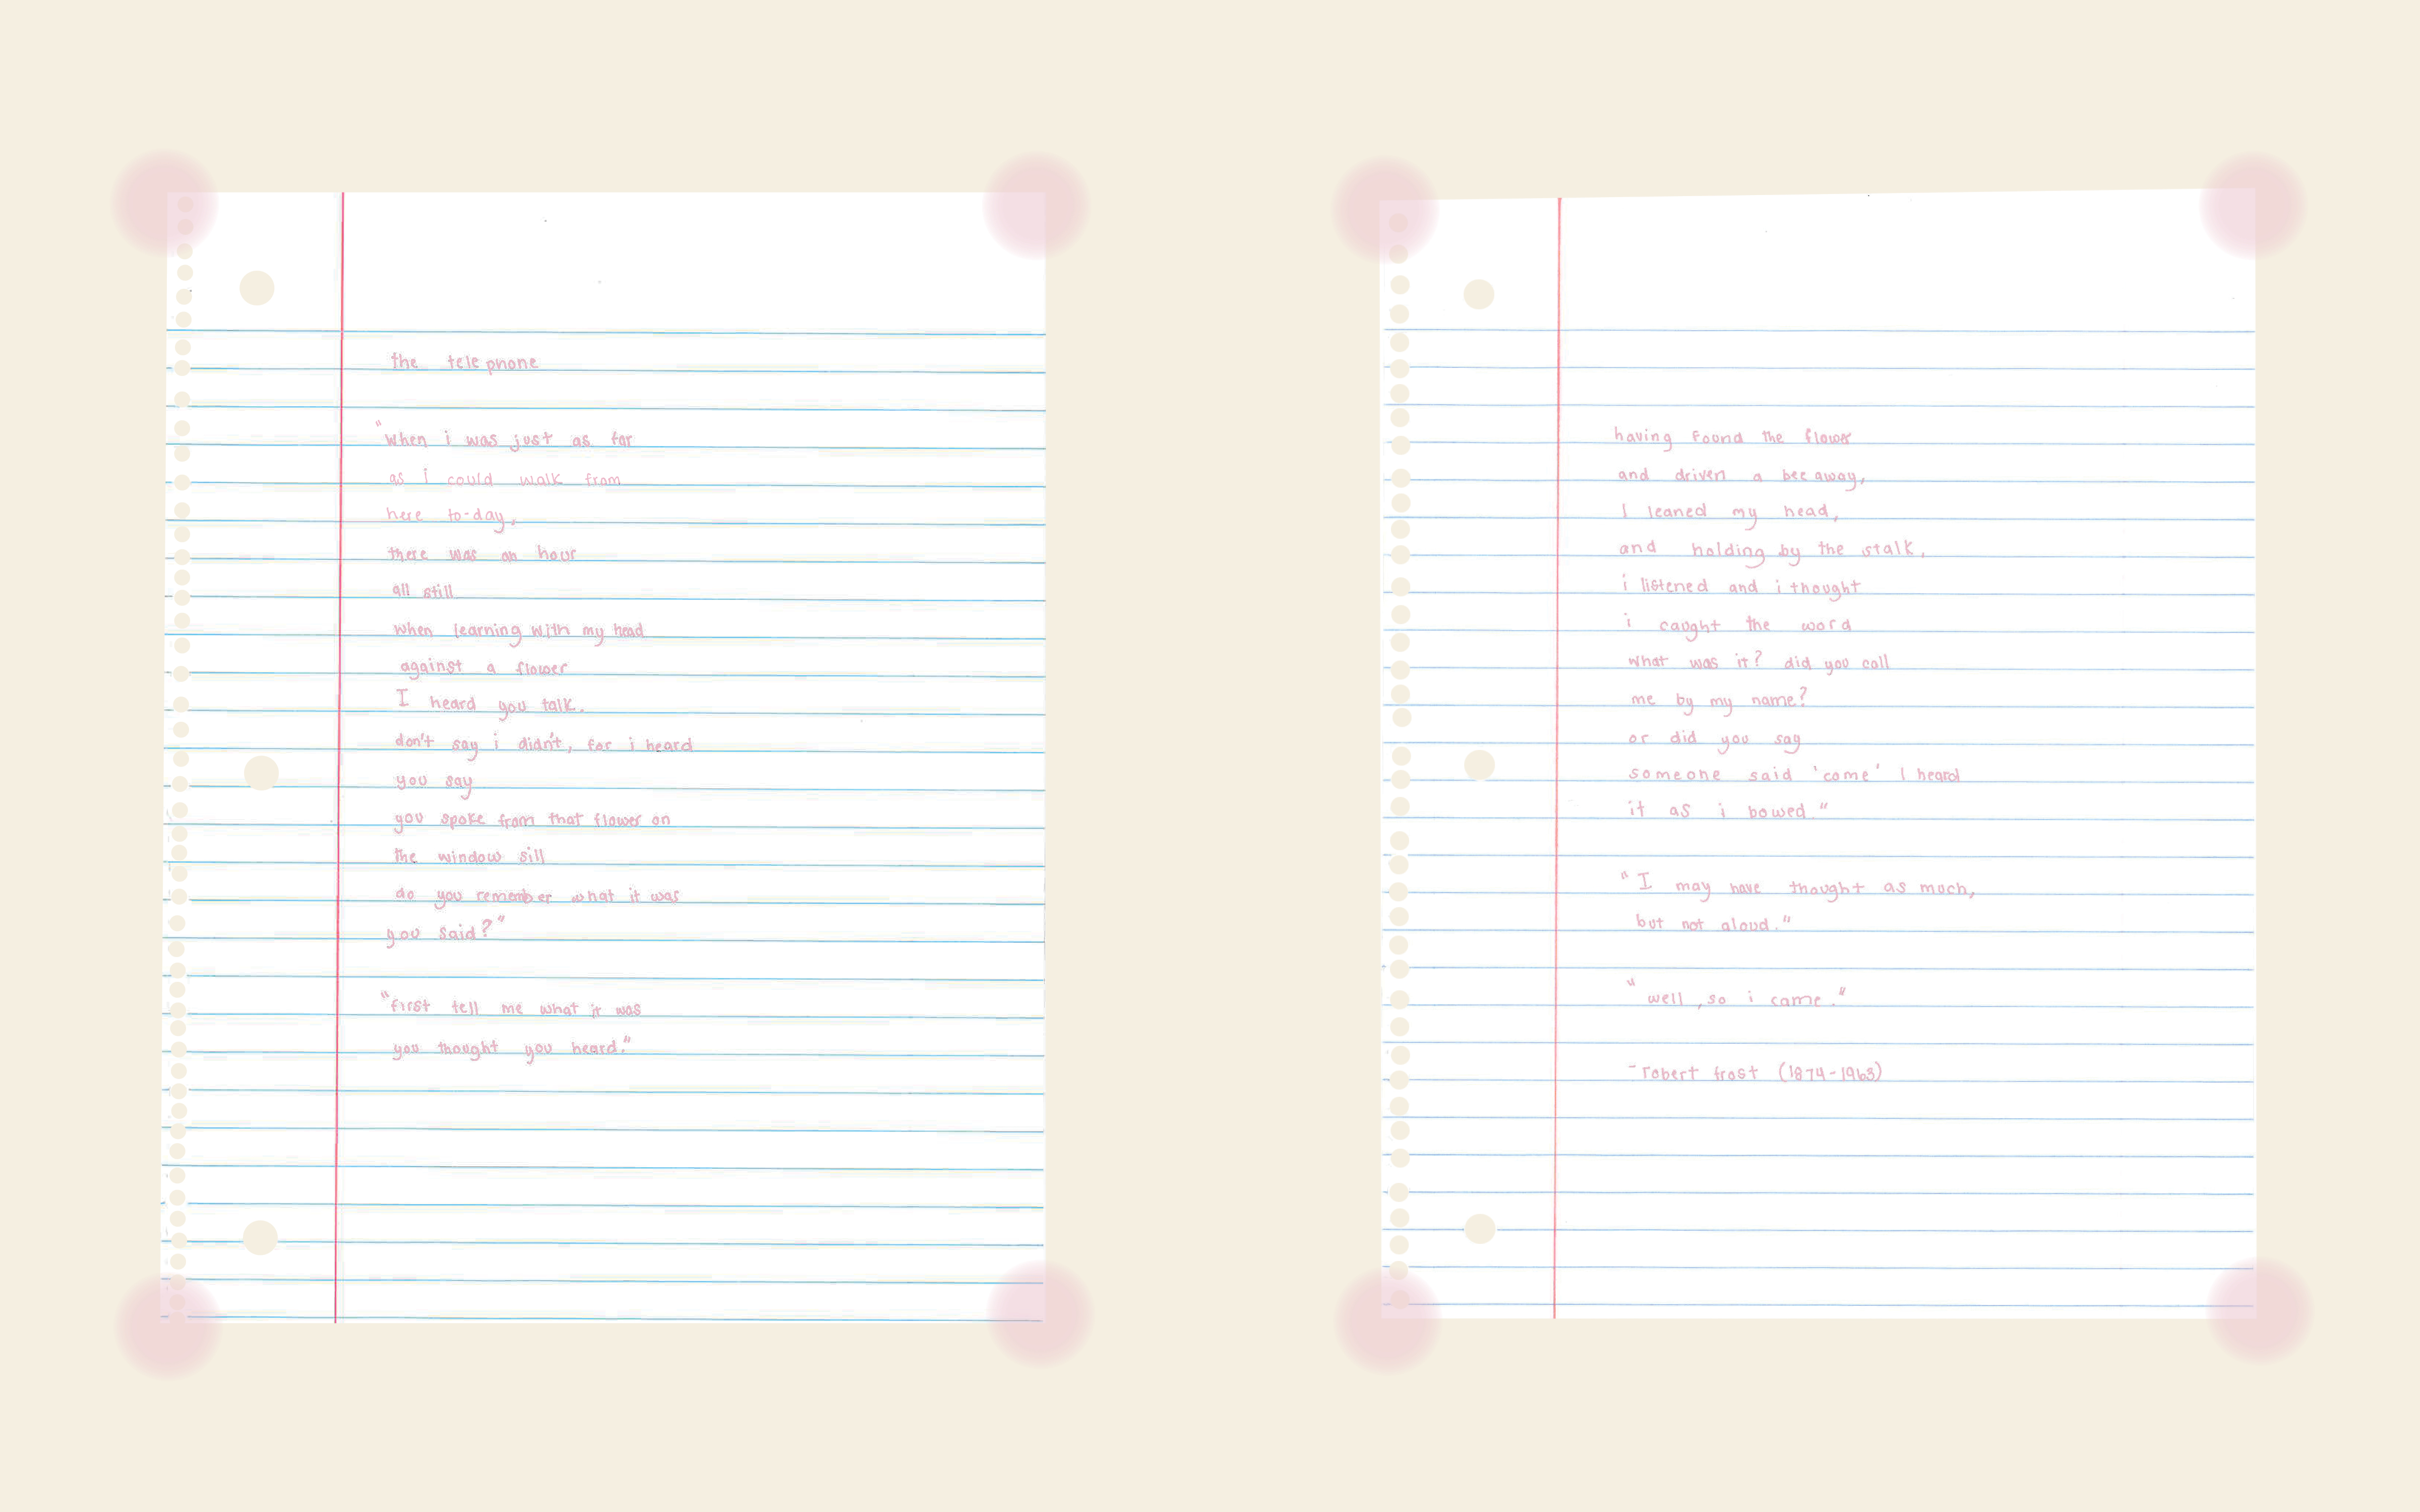 the telephone
"when i was just as far
as i could walk from
here to-day,
there was an hour
all still
when learning with my head
against a flower
I heard you talk.
don't say i didn't, for i heard
you say
you spoke from that flower on
the window sill
do you remember what it was
you said?"
"first tell me what it was
you thought you heard."
having found the flower
and driven a bee away,
I leaned my head,
and holding by the stalk,
i listened and i thought
i caught the word
what was it? did you call
me by my name?
or did you say
someone said 'come' I heard
it as i bowed."
"I may have thought as much,
but not aloud."
"well, so i came."
-robert frost (1874-1963)